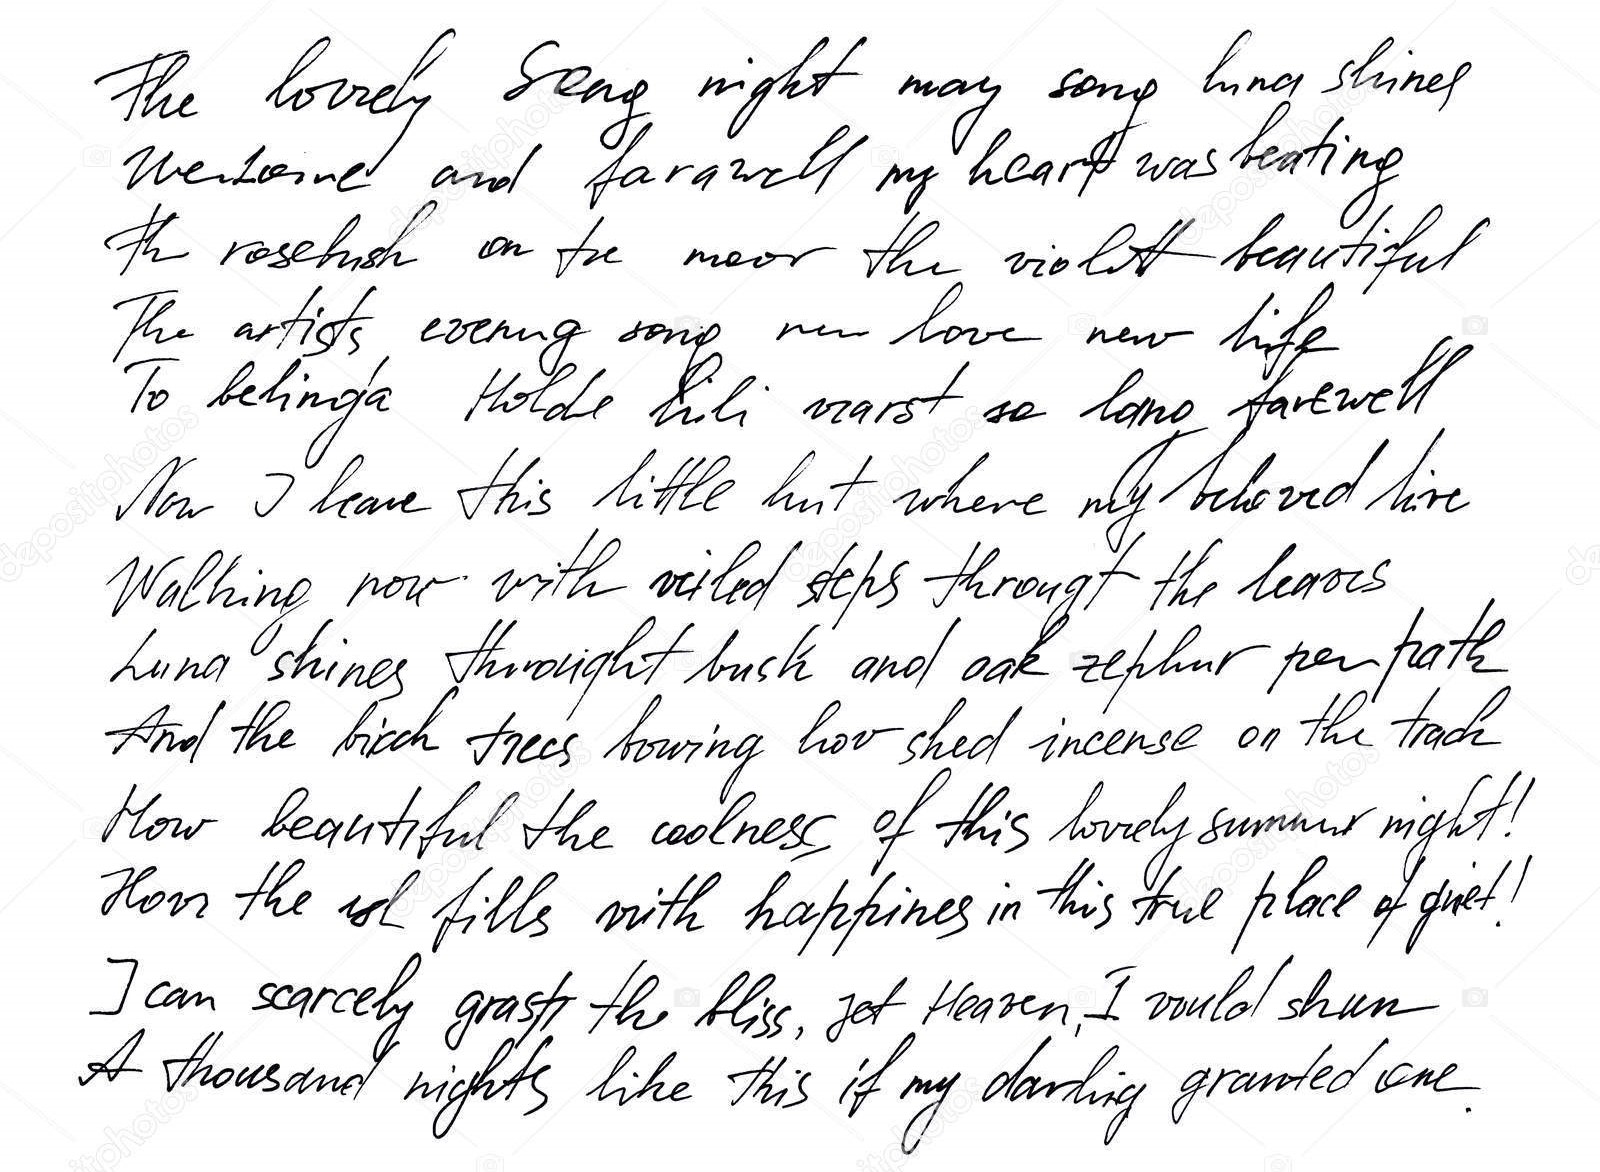 The lovely Song night may song luna shines
Welcome and farawell my heart was beating
Th rosebush on the moor the violett beautiful
The artists evening song new love new life
To belinda Holde Lili warst so lang farewell
Now I leave this little hut where my beloved live
Walking now with veiled steps througt the leaves
Luna shines throuight busk and oak zephur per path
And the birch trees bowing low shed incense on the track
How beautiful the coolness of this lovely summur night!
How the fills with happines in this true place of quiet!
I can scarcely grasp the bliss, yet Heaven, I would shun
A thousand nights like this if my darling granted one.
depositphotos